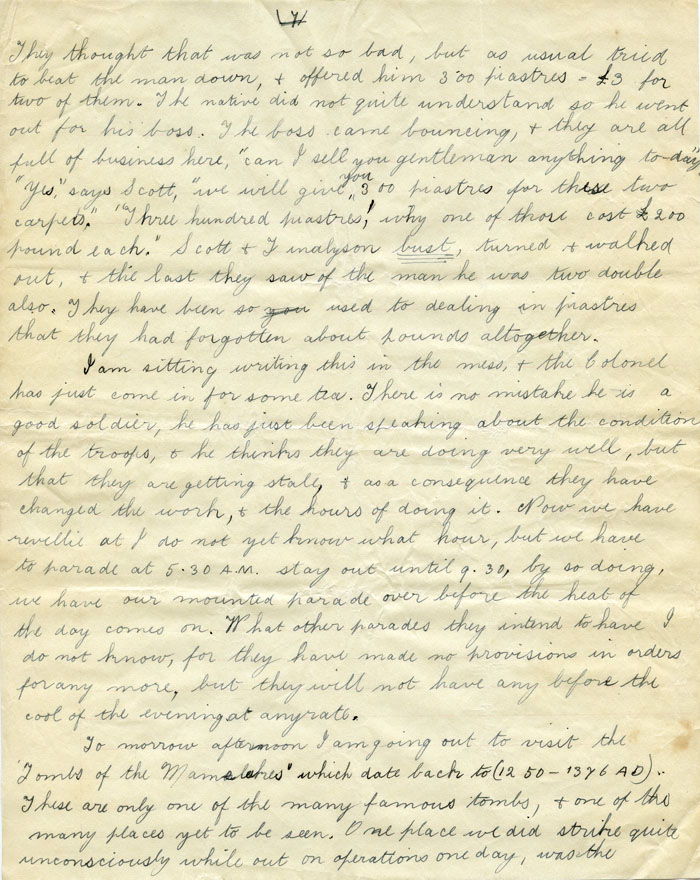 7
They thought that was not so bad, but as usual tried
to beat the man down, & offered him 300 piastres = £3 for
two of them. The native did not quite understand so he went
out for his boss. The boss came bouncing, & they are all
full of business here, "can I sell you gentleman anything to-day"
"Yes," says Scott, "we will give you 300 piastres for these two
carpets." "Three hundred piastres! why one of those cost £200
pound each." Scott & Finalyson bust, turned & walked
out, & the last they saw of the man he was two double
also. They have been so you used to dealing in piastres
that they had forgotten about pounds altogether.
I am sitting writing this in the mess, & the Colonel
has just come in for some tea. There is no mistake he is a
good soldier, he has just been speaking about the condition
of the troops, & he thinks they are doing very well, but
that they are getting stale, & as a consequence they have
changed the work, & the hours of doing it. Now we have
revellie at I do not yet know what hour, but we have
to parade at 5.30 A.M. stay out until 9.30, by so doing,
we have our mounted parade over before the heat of
the day comes on. What other parades they intend to have I
do not know, for they have made no provisions in orders
for any more, but they will not have any before the
cool of the evening at anyrate.
To morrow afternoon I am going out to visit the
"Tombs of the Mamelukes" which date back to (1250-1376 AD).
These are only one of the many famous tombs, & one of the
many places yet to be seen. One place we did strike quite
unconsciously while out on operations one day, was the